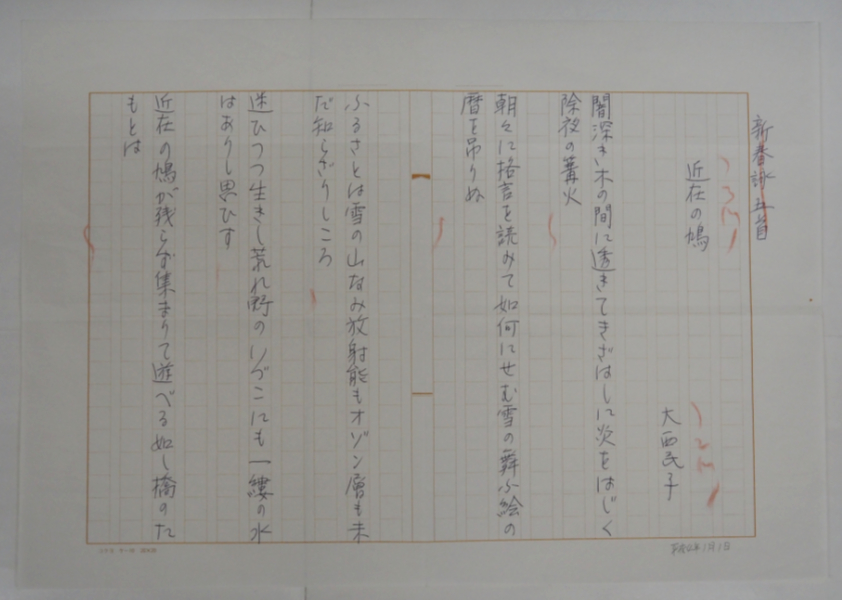 新春詠五首
近在の鳩
大西民子
闇深き木の間に透きてきざはしに炎をはじく
除夜の篝火
朝々に格言を読みて如何にせむ雪の舞ふ絵の
暦を吊りぬ
ふるさとは雪の山なみ放射能もオゾン層も未
だ知らざりしころ
迷ひつつ生きし荒れ野のいづこにも一縷の水
はありし思ひす
近在の鳩が残らず集まりて遊べる如し橋のた
もとは